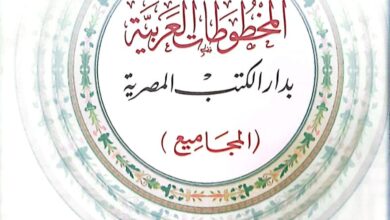 المخطوطات العربية
بدار الكتب المصرية
(المجاميع)